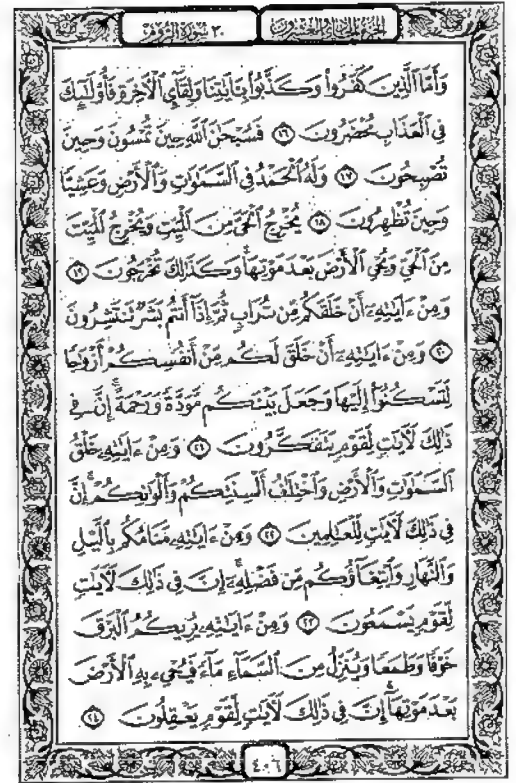 ٣٠ سورة الروم الجزء الحادي والعشرون
وَأَمَّا ٱلَّذِينَ كَفَرُوا۟ وَكَذَّبُوا۟ بِـَٔايَٰتِنَا وَلِقَآئِ ٱلْءَاخِرَةِ فَأُو۟لَٰٓئِكَ
فِى ٱلْعَذَابِ مُحْضَرُونَ ١٦ فَسُبْحَٰنَ ٱللَّهِ حِينَ تُمْسُونَ وَحِينَ
تُصْبِحُونَ ١٧ وَلَهُ ٱلْحَمْدُ فِى ٱلسَّمَٰوَٰتِ وَٱلْأَرْضِ وَعَشِيًّا
وَحِينَ تُظْهِرُونَ ١٨ يُخْرِجُ ٱلْحَىَّ مِنَ ٱلْمَيِّتِ وَيُخْرِجُ ٱلْمَيِّتَ
مِنَ ٱلْحَىِّ وَيُحْىِ ٱلْأَرْضَ بَعْدَ مَوْتِهَا ۚ وَكَذَٰلِكَ تُخْرَجُونَ ١٩
وَمِنْ ءَايَٰتِهِۦٓ أَنْ خَلَقَكُم مِّن تُرَابٍ ثُمَّ إِذَآ أَنتُم بَشَرٌ تَنتَشِرُونَ
٢٠ وَمِنْ ءَايَٰتِهِۦٓ أَنْ خَلَقَ لَكُم مِّنْ أَنفُسِكُمْ أَزْوَٰجًا
لِّتَسْكُنُوٓا۟ إِلَيْهَا وَجَعَلَ بَيْنَكُم مَّوَدَّةً وَرَحْمَةً ۚ إِنَّ فِى
ذَٰلِكَ لَءَايَٰتٍ لِّقَوْمٍ يَتَفَكَّرُونَ ٢١ وَمِنْ ءَايَٰتِهِۦ خَلْقُ
ٱلسَّمَٰوَٰتِ وَٱلْأَرْضِ وَٱخْتِلَٰفُ أَلْسِنَتِكُمْ وَأَلْوَٰنِكُمْ ۚ إِنَّ
فِى ذَٰلِكَ لَءَايَٰتٍ لِّلْعَٰلِمِينَ ٢٢ وَمِنْ ءَايَٰتِهِۦ مَنَامُكُم بِٱلَّيْلِ
وَٱلنَّهَارِ وَٱبْتِغَآؤُكُم مِّن فَضْلِهِۦٓ ۚ إِنَّ فِى ذَٰلِكَ لَءَايَٰتٍ
لِّقَوْمٍ يَسْمَعُونَ ٢٣ وَمِنْ ءَايَٰتِهِۦ يُرِيكُمُ ٱلْبَرْقَ
خَوْفًا وَطَمَعًا وَيُنَزِّلُ مِنَ ٱلسَّمَآءِ مَآءً فَيُحْىِۦ بِهِ ٱلْأَرْضَ
بَعْدَ مَوْتِهَآ ۚ إِنَّ فِى ذَٰلِكَ لَءَايَٰتٍ لِّقَوْمٍ يَعْقِلُونَ ٢٤
٤٠٦